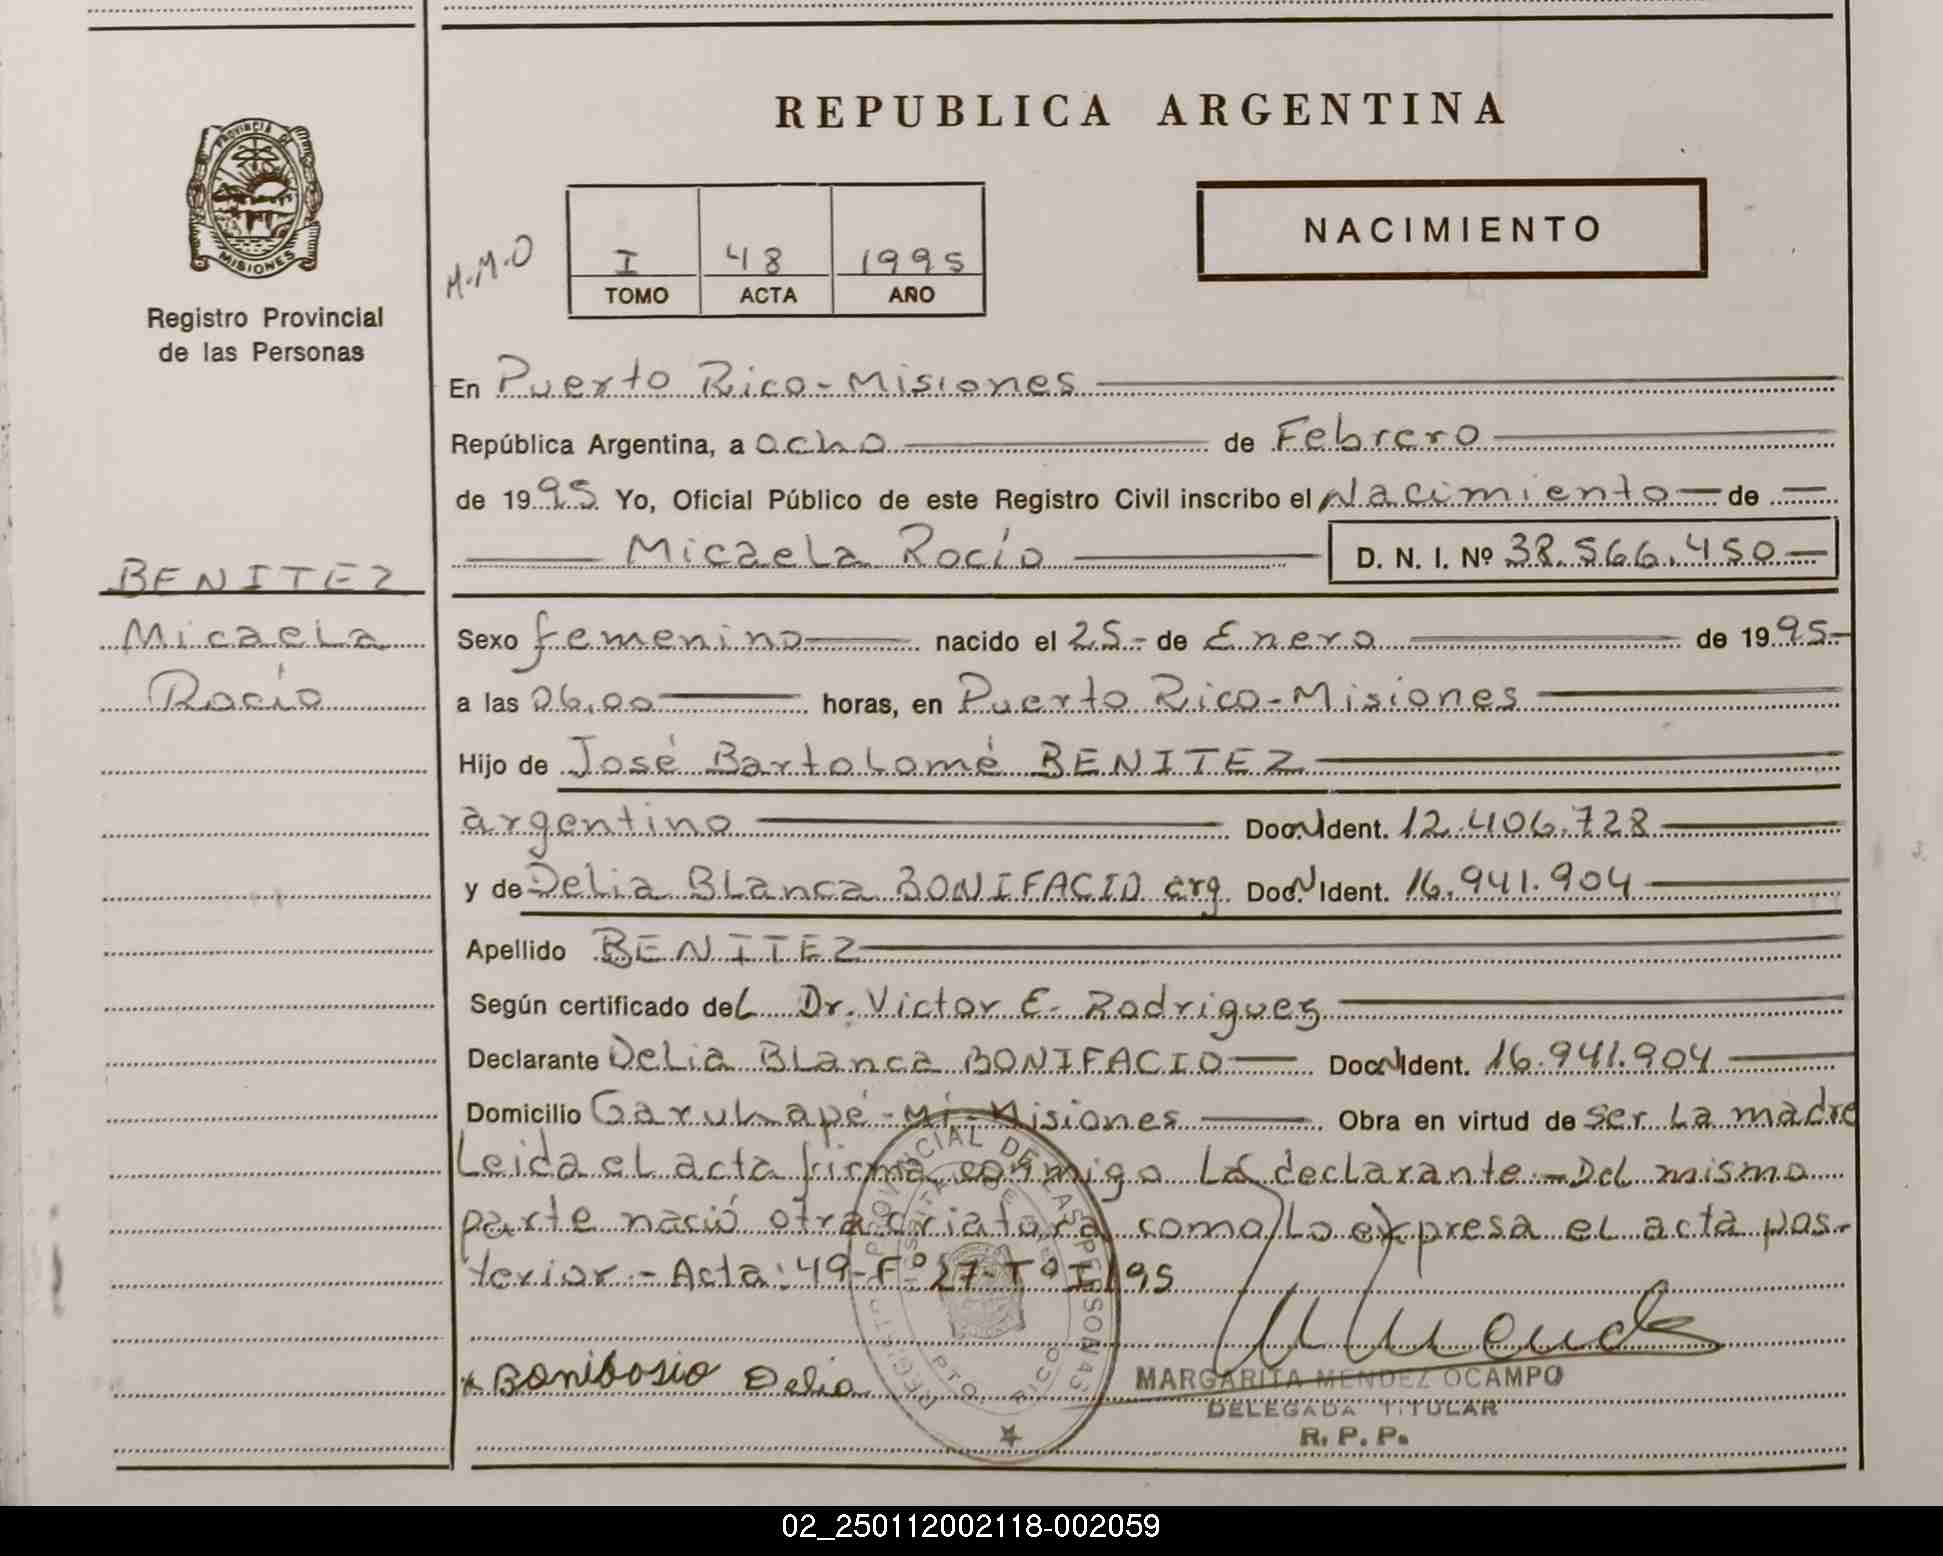 REPUBLICA ARGENTINA
PROVINCIA DE
MISIONES
Registro Provincial
de las Personas
NACIMIENTO
M.M.O
I 48 1995
TOMO ACTA AÑO
En Puerto Rico-Misiones
República Argentina, a ocho de Febrero
de 1995 Yo, Oficial Público de este Registro Civil inscribo el Nacimiento de
Micaela Rocío D. N. I. Nº 38.566.450.-
BENITEZ
Micaela
Rocío
Sexo femenino nacido el 25.- de Enero de 1995.-
a las 06,00 horas, en Puerto Rico-Misiones
Hijo de José Bartolomé BENITEZ
argentino Doc.N Ident. 12.406.728
y de Delia Blanca BONIFACIO arg. Doc.N Ident. 16.941.904
Apellido BENITEZ
Según certificado del Dr. Victor E. Rodriguez
Declarante Delia Blanca BONIFACIO Doc.N Ident. 16.941.904
Domicilio Garuhapé-Mí-Misiones Obra en virtud de ser la madre
Leida el acta firma conmigo La declarante.- Del mismo
parte nació otra criatura como lo expresa el acta pos-
terior.- Acta: 49-Fº27-TºI/95
REGISTRO PROVINCIAL DE LAS PERSONAS
PTO. RICO
Bonibosio Delia
MARGARITA MENDEZ OCAMPO
DELEGADA TITULAR
R. P. P.
02_250112002118-002059